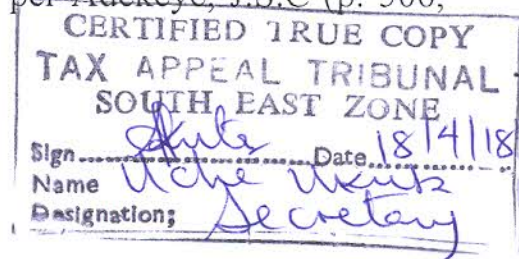 per Adekeye, J.S.C (p. 366,
CERTIFIED TRUE COPY
TAX APPEAL TRIBUNAL
SOUTH EAST ZONE
Sign Date 18/4/18
Name Uche
Designation; Secretary